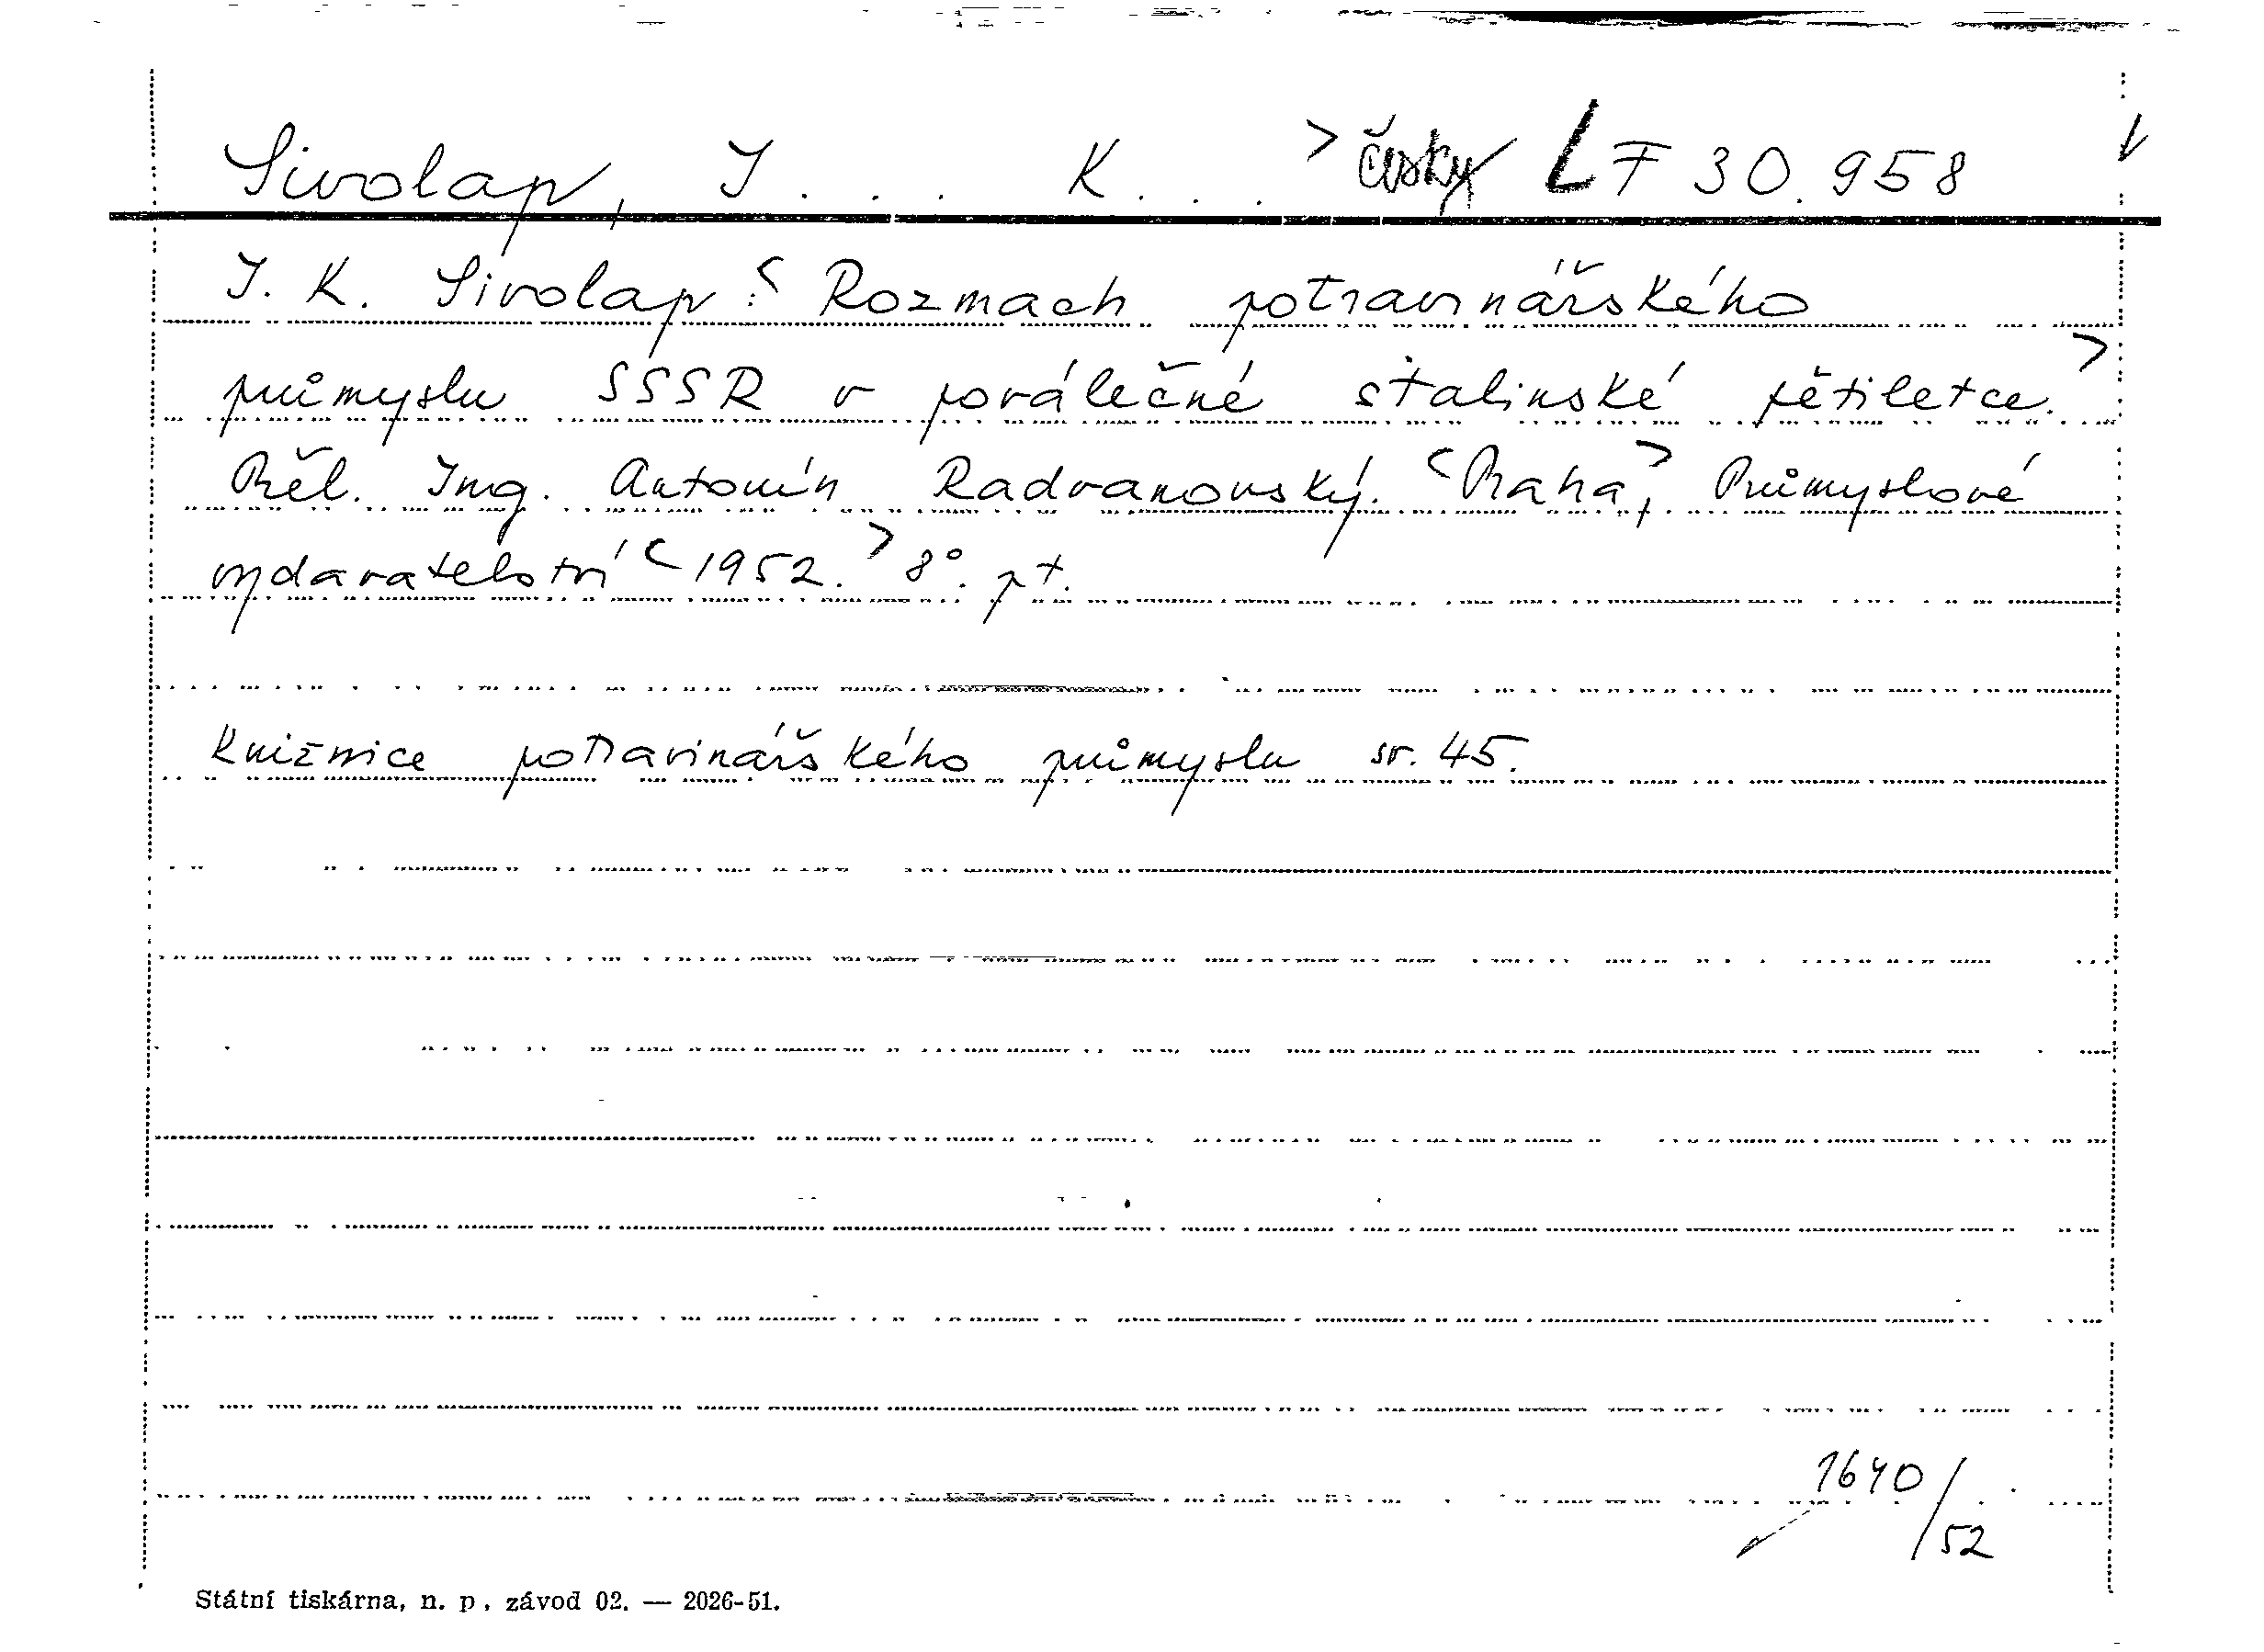 Sivolap, I... K... > česky L F 30.958
I. K. Sivolap: < Rozmach potravinářského
průmyslu SSSR v poválečné stalinské pětiletce. >
Přel. Ing. Antonín Radvanovský. < Praha, > Průmyslové
vydavatelství < 1952. > 8°. pt.
Knižnice potravinářského průmyslu sv. 45.
1640/52
Státní tiskárna, n. p., závod 02. — 2026-51.